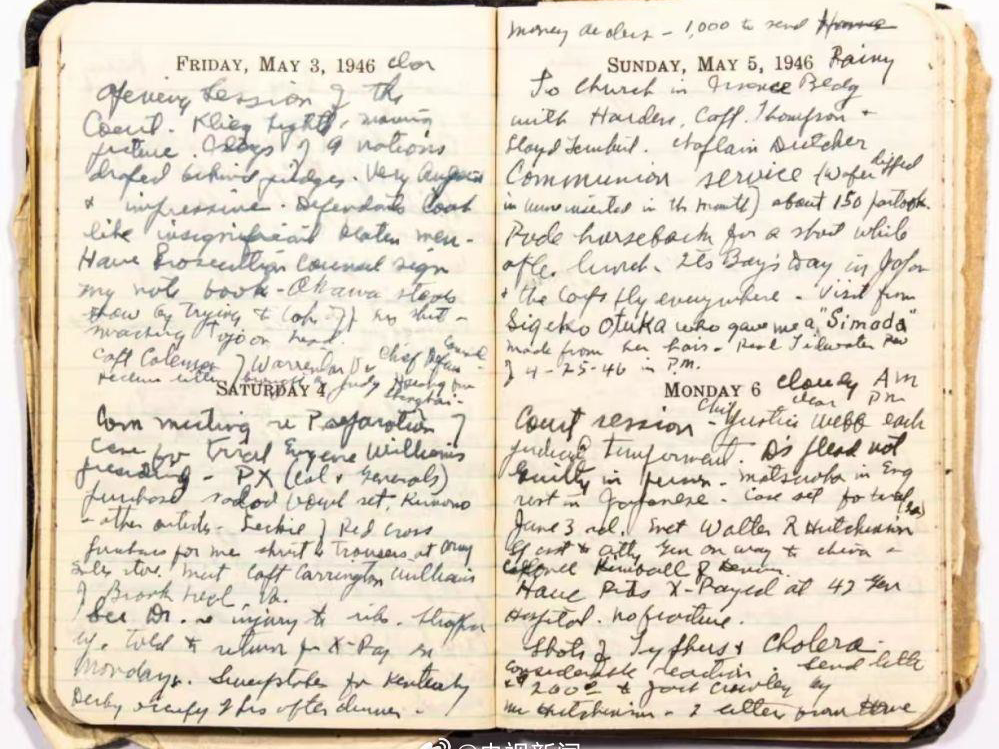 FRIDAY, MAY 3, 1946 clear
Opening Session of the
Court. Klieg lights, moving
picture. Flags of 9 nations
draped behind judges. Very August
& impressive. Defendants look
like insignificant beaten men.
Have Prosecution Counsel sign
my note book - Okawa steps
show by trying to
Tojo on head.
Capt Coleman Chief Defense Counsel
Judge
Shanghai
SATURDAY 4
Com meeting re Preparation of
Case for trial Eugene Williams
presiding - PX (Col & Generals)
purchase salad bowl set, Kimono
& other articles. of Red Cross
for me shirt & trousers at Army
Sales store. Met Capt Carrington Williams
of Va.
See Dr. re injury to ribs. Strapped
up. Told to return for X-Ray on
Monday. Sweepstakes for Kentucky
Derby after dinner -
money orders - 1,000 to send Home
SUNDAY, MAY 5, 1946 Rainy
To Church in Bldg
with Harden, Capt. Thompson &
Lloyd Chaplain Dutcher
Communion service (Wafer dipped
in wine inserted in the mouth) about 150 partook.
Rode horseback for a short while
after lunch. Its Boy's Day in Japan
& the Carps fly everywhere - Visit from
Sigeko Otuka who gave me a "Simada"
made from her hair - Read Tidewater Rev
of 4-25-46 in P.M.
MONDAY 6 cloudy AM
clear PM
Court session - Chief Justice Webb each
Ds plead not
Guilty in person. Matsuoka in Eng
rest in Japanese. Case set for trial
June 3rd. Met Walter R Hutchinson
Asst to Atty Gen on way to China -
Colonel Kimball &
Have Ribs X-Rayed at 42 Gen
Hospital. No fracture.
Shots of Typhus & Cholera.
considerable reaction. Send letter
& 200 to Jack Crowley by
Mr Hutchinson - 2 letters from Home
@央视新闻